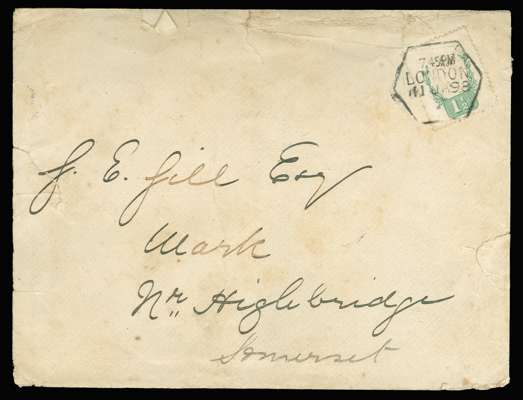 7.45PM
LONDON
98
1
G. E. Gill Esq
Mark
Nr. Highbridge
Somerset